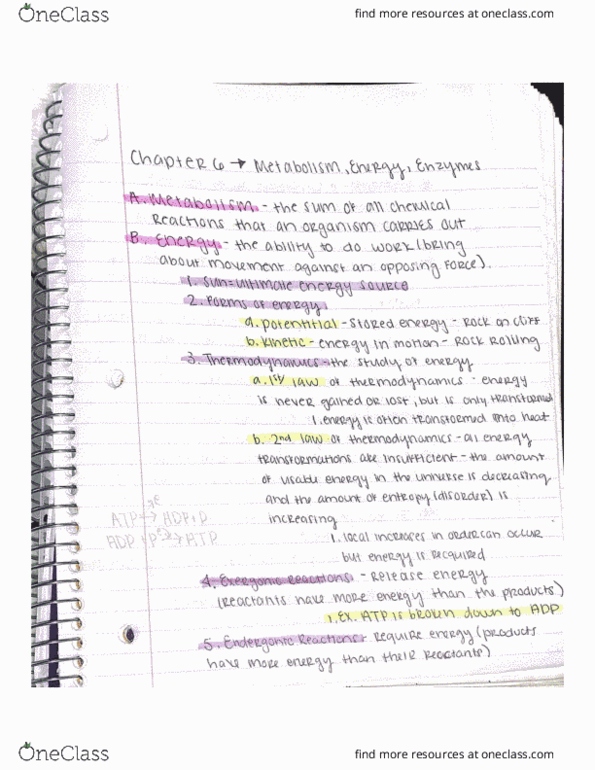 OneClass
find more resources at oneclass.com
Chapter 6 → Metabolism, Energy, Enzymes
A. Metabolism - the sum of all chemical
Reactions that an organism carries out
B. Energy - the ability to do work (bring
about movement against an opposing force).
1. Sun = ultimate energy source
2. Forms of energy
a. potential - stored energy - rock on cliff
b. kinetic - energy in motion - rock rolling
3. Thermodynamics - the study of energy
a. 1st law of thermodynamics - energy
is never gained or lost, but is only transformed
1. energy is often transformed into heat
b. 2nd law of thermodynamics - all energy
transformations are insufficient - the amount
of usable energy in the universe is decreasing
and the amount of entropy (disorder) is
increasing
1. local increases in order can occur
but energy is required
ATP → ADP+P
ADP + P → ATP
4. Exergonic Reactions - release energy
(reactants have more energy than the products)
1. Ex. ATP is broken down to ADP
5. Endergonic Reactions - require energy (products
have more energy than their reactants)
OneClass
find more resources at oneclass.com